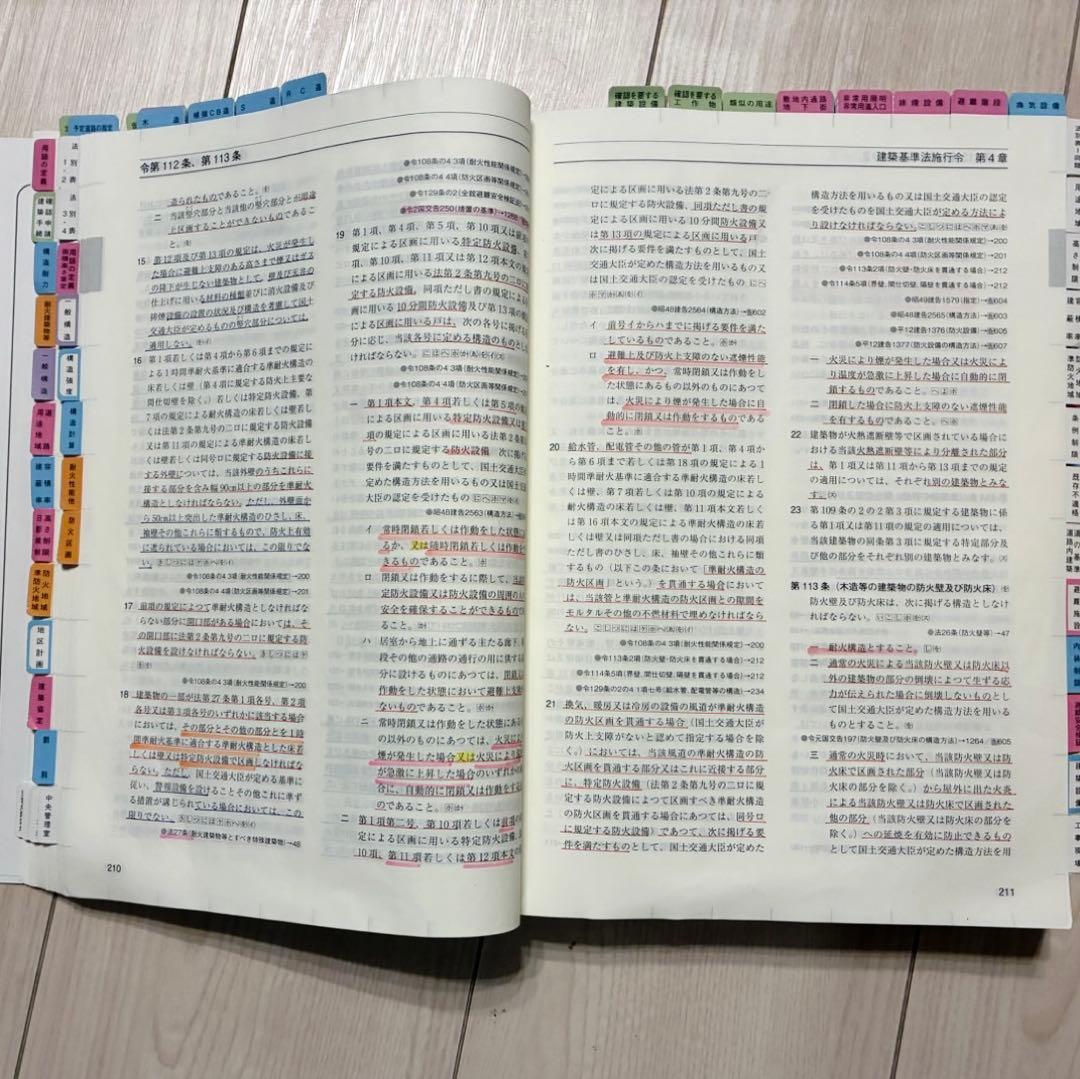 木　造
補強CB造
S　造
RC造
予定道路の指定
令第112条、第113条
造られたものであること。
二　当該竪穴部分と当該他の竪穴部分とが用途
上区画することができないものであるこ
と。
15　第12項及び第13項の規定は、火災が発生し
た場合に避難上支障のある高さまで煙又はガス
の降下が生じない建築物として、壁及び天井の
仕上げに用いる材料の種類並びに消火設備及び
排煙設備の設置の状況及び構造を考慮して国土
交通大臣が定めるものの竪穴部分については、
適用しない。
16　第1項若しくは第4項から第6項までの規定に
よる1時間準耐火基準に適合する準耐火構造の
床若しくは壁（第4項に規定する防火上主要な
間仕切壁を除く。）若しくは特定防火設備、第
7項の規定による耐火構造の床若しくは壁若し
くは法第2条第九号の二ロに規定する防火設備
又は第11項の規定による準耐火構造の床若し
くは壁若しくは同号ロに規定する防火設備に接
する外壁については、当該外壁のうちこれらに
接する部分を含み幅90cm以上の部分を準耐火
構造としなければならない。ただし、外壁面か
ら50cm以上突出した準耐火構造のひさし、床、
袖壁その他これらに類するもので、防火上有効
に遮られている場合においては、この限りでな
い。
●令108条の4 3項（耐火性能関係規定）→200
●令108条の4 4項（防火区画等関係規定）→201
17　前項の規定によつて準耐火構造としなければな
らない部分に開口部がある場合においては、そ
の開口部に法第2条第九号の二ロに規定する防
火設備を設けなければならない。
●令108条の4 3項（耐火性能関係規定）→200
●令108条の4 4項（防火区画等関係規定）→201
18　建築物の一部が法第27条第1項各号、第2項
各号又は第3項各号のいずれかに該当する場合
においては、その部分とその他の部分とを1時
間準耐火基準に適合する準耐火構造とした床若
しくは壁又は特定防火設備で区画しなければな
らない。ただし、国土交通大臣が定める基準に
従い、警報設備を設けることその他これに準ず
る措置が講じられている場合においては、この
限りでない。
●法27条（耐火建築物等とすべき特殊建築物）→48
210
●令108条の4 3項（耐火性能関係規
●令108条の4 4項（防火区画等関係規
●令129条の2（全館避難安全検証法
●令2国交告250（措置の基準）→1268
19　第1項、第4項、第5項、第10項又は前
規定による区画に用いる特定防火設備、
項、第10項、第11項又は第12項本文の規
による区画に用いる法第2条第九号の二ロに
定する防火設備、同項ただし書の規定による
画に用いる10分間防火設備及び第13項の規定
よる区画に用いる戸は、次の各号に掲げる区
分に応じ、当該各号に定める構造のものとし
ければならない。
●令108条の4 3項（耐火性能関係規定
●令108条の4 4項（防火区画等関係規定
一　第1項本文、第4項若しくは第5項の規
による区画に用いる特定防火設備又は第
項の規定による区画に用いる法第2条第
号の二ロに規定する防火設備　次に掲げ
要件を満たすものとして、国土交通大臣
定めた構造方法を用いるもの又は国土交
大臣の認定を受けたもの
●昭48建告2563（構造方法）
イ　常時閉鎖若しくは作動をした状態に
るか、又は随時閉鎖若しくは作動を
きるものであること。
ロ　閉鎖又は作動をするに際して、当該
定防火設備又は防火設備の周囲の人
安全を確保することができるもので
ること。
ハ　居室から地上に通ずる主たる廊下、
段その他の通路の通行の用に供する
分に設けるものにあつては、閉鎖又
作動をした状態において避難上支障
ないものであること。
ニ　常時閉鎖又は作動をした状態にあ
の以外のものにあつては、火災によ
煙が発生した場合又は火災により温
が急激に上昇した場合のいずれかの
合に、自動的に閉鎖又は作動をする
のであること。
二　第1項第二号、第10項若しくは前項の
10項、第11項若しくは第12項本文の
確認を要する
建築設備
確認を要する
工作物
類似の用途
敷地内通路
地下街
非常用照明
非常用進入口
排煙設備
避難階段
換気設備
建築基準法施行令　第4章
定による区画に用いる法第2条第九号の二
ロに規定する防火設備、同項ただし書の規
定による区画に用いる10分間防火設備又
は第13項の規定による区画に用いる戸
次に掲げる要件を満たすものとして、国土
交通大臣が定めた構造方法を用いるもの又
は国土交通大臣の認定を受けたもの
●昭48建告2564（構造方法）→602
イ　前号イからハまでに掲げる要件を満た
しているものであること。
ロ　避難上及び防火上支障のない遮煙性能
を有し、かつ、常時閉鎖又は作動をし
た状態にあるもの以外のものにあつて
は、火災により煙が発生した場合に自
動的に閉鎖又は作動をするものである
こと。
20　給水管、配電管その他の管が第1項、第4項か
ら第6項まで若しくは第18項の規定による1
時間準耐火基準に適合する準耐火構造の床若し
くは壁、第7項若しくは第10項の規定による
耐火構造の床若しくは壁、第11項本文若しく
は第16項本文の規定による準耐火構造の床若
しくは壁又は同項ただし書の場合における同項
ただし書のひさし、床、袖壁その他これらに類
するもの（以下この条において「準耐火構造の
防火区画」という。）を貫通する場合において
は、当該管と準耐火構造の防火区画との隙間を
モルタルその他の不燃材料で埋めなければなら
ない。
●令108条の4 3項（耐火性能関係規定）→200
●令113条2項（防火壁・防火床を貫通する場合）→212
●令114条5項（界壁、間仕切壁、隔壁を貫通する場合）→212
●令129条の2の4 1項七号（給水管、配電管等の構造）→234
21　換気、暖房又は冷房の設備の風道が準耐火構造
の防火区画を貫通する場合（国土交通大臣が防
火上支障がないと認めて指定する場合を除
く。）においては、当該風道の準耐火構造の防
火区画を貫通する部分又はこれに近接する部分
に、特定防火設備（法第2条第九号の二ロに規
定する防火設備によつて区画すべき準耐火構造
の防火区画を貫通する場合にあつては、同号ロ
に規定する防火設備）であつて、次に掲げる要
件を満たすものとして、国土交通大臣が定めた
構造方法を用いるもの又は国土交通大臣の認定
を受けたものを国土交通大臣が定める方法によ
り設けなければならない。
●令108条の4 3項（耐火性能関係規定）→200
●令108条の4 4項（防火区画等関係規定）→201
●令113条2項（防火壁・防火床を貫通する場合）→212
●令114条5項（界壁、間仕切壁、隔壁を貫通する場合）→212
●昭49建告1579（指定）→604
●昭48建告2565（構造方法）→603
●平12建告1376（防火設備）→605
●平12建告1377（防火設備の構造方法）→607
一　火災により煙が発生した場合又は火災によ
り温度が急激に上昇した場合に自動的に閉
鎖するものであること。
二　閉鎖した場合に防火上支障のない遮煙性能
を有するものであること。
22　建築物が火熱遮断壁等で区画されている場合に
おける当該火熱遮断壁等により分離された部分
は、第1項又は第11項から第13項までの規定
の適用については、それぞれ別の建築物とみな
す。
23　第109条の2の2第3項に規定する建築物に係
る第1項又は第11項の規定の適用については、
当該建築物の同条第3項に規定する特定部分及
び他の部分をそれぞれ別の建築物とみなす。
第113条（木造等の建築物の防火壁及び防火床）
防火壁及び防火床は、次に掲げる構造としなけ
ればならない。
●法26条（防火壁等）→47
一　耐火構造とすること。
二　通常の火災による当該防火壁又は防火床以
外の建築物の部分の倒壊によつて生ずる応
力が伝えられた場合に倒壊しないものとし
て国土交通大臣が定めた構造方法を用いる
ものとすること。
●令元国交告197（防火壁及び防火床の構造方法）→1264／605
三　通常の火災時において、当該防火壁又は防
火床で区画された部分（当該防火壁又は防
火床の部分を除く。）から屋外に出た火炎
による当該防火壁又は防火床で区画された
他の部分（当該防火壁又は防火床の部分を
除く。）への延焼を有効に防止できるもの
として国土交通大臣が定めた構造方法を用
211
用語の定義
確認申請
建築手続
構造耐力
耐火建築物等
一般構造
道路
用途地域
容積率
建蔽率
高さ制限
日影規制
防火地域
準防火地域
地区計画
建築協定
罰則
中央管理室
法別表1・2
法別表3・4
一般構造
構造強度
構造計算
耐火性能他
防火区画
高さ制限
条例制限
既存不適格
避難施設
内装制限